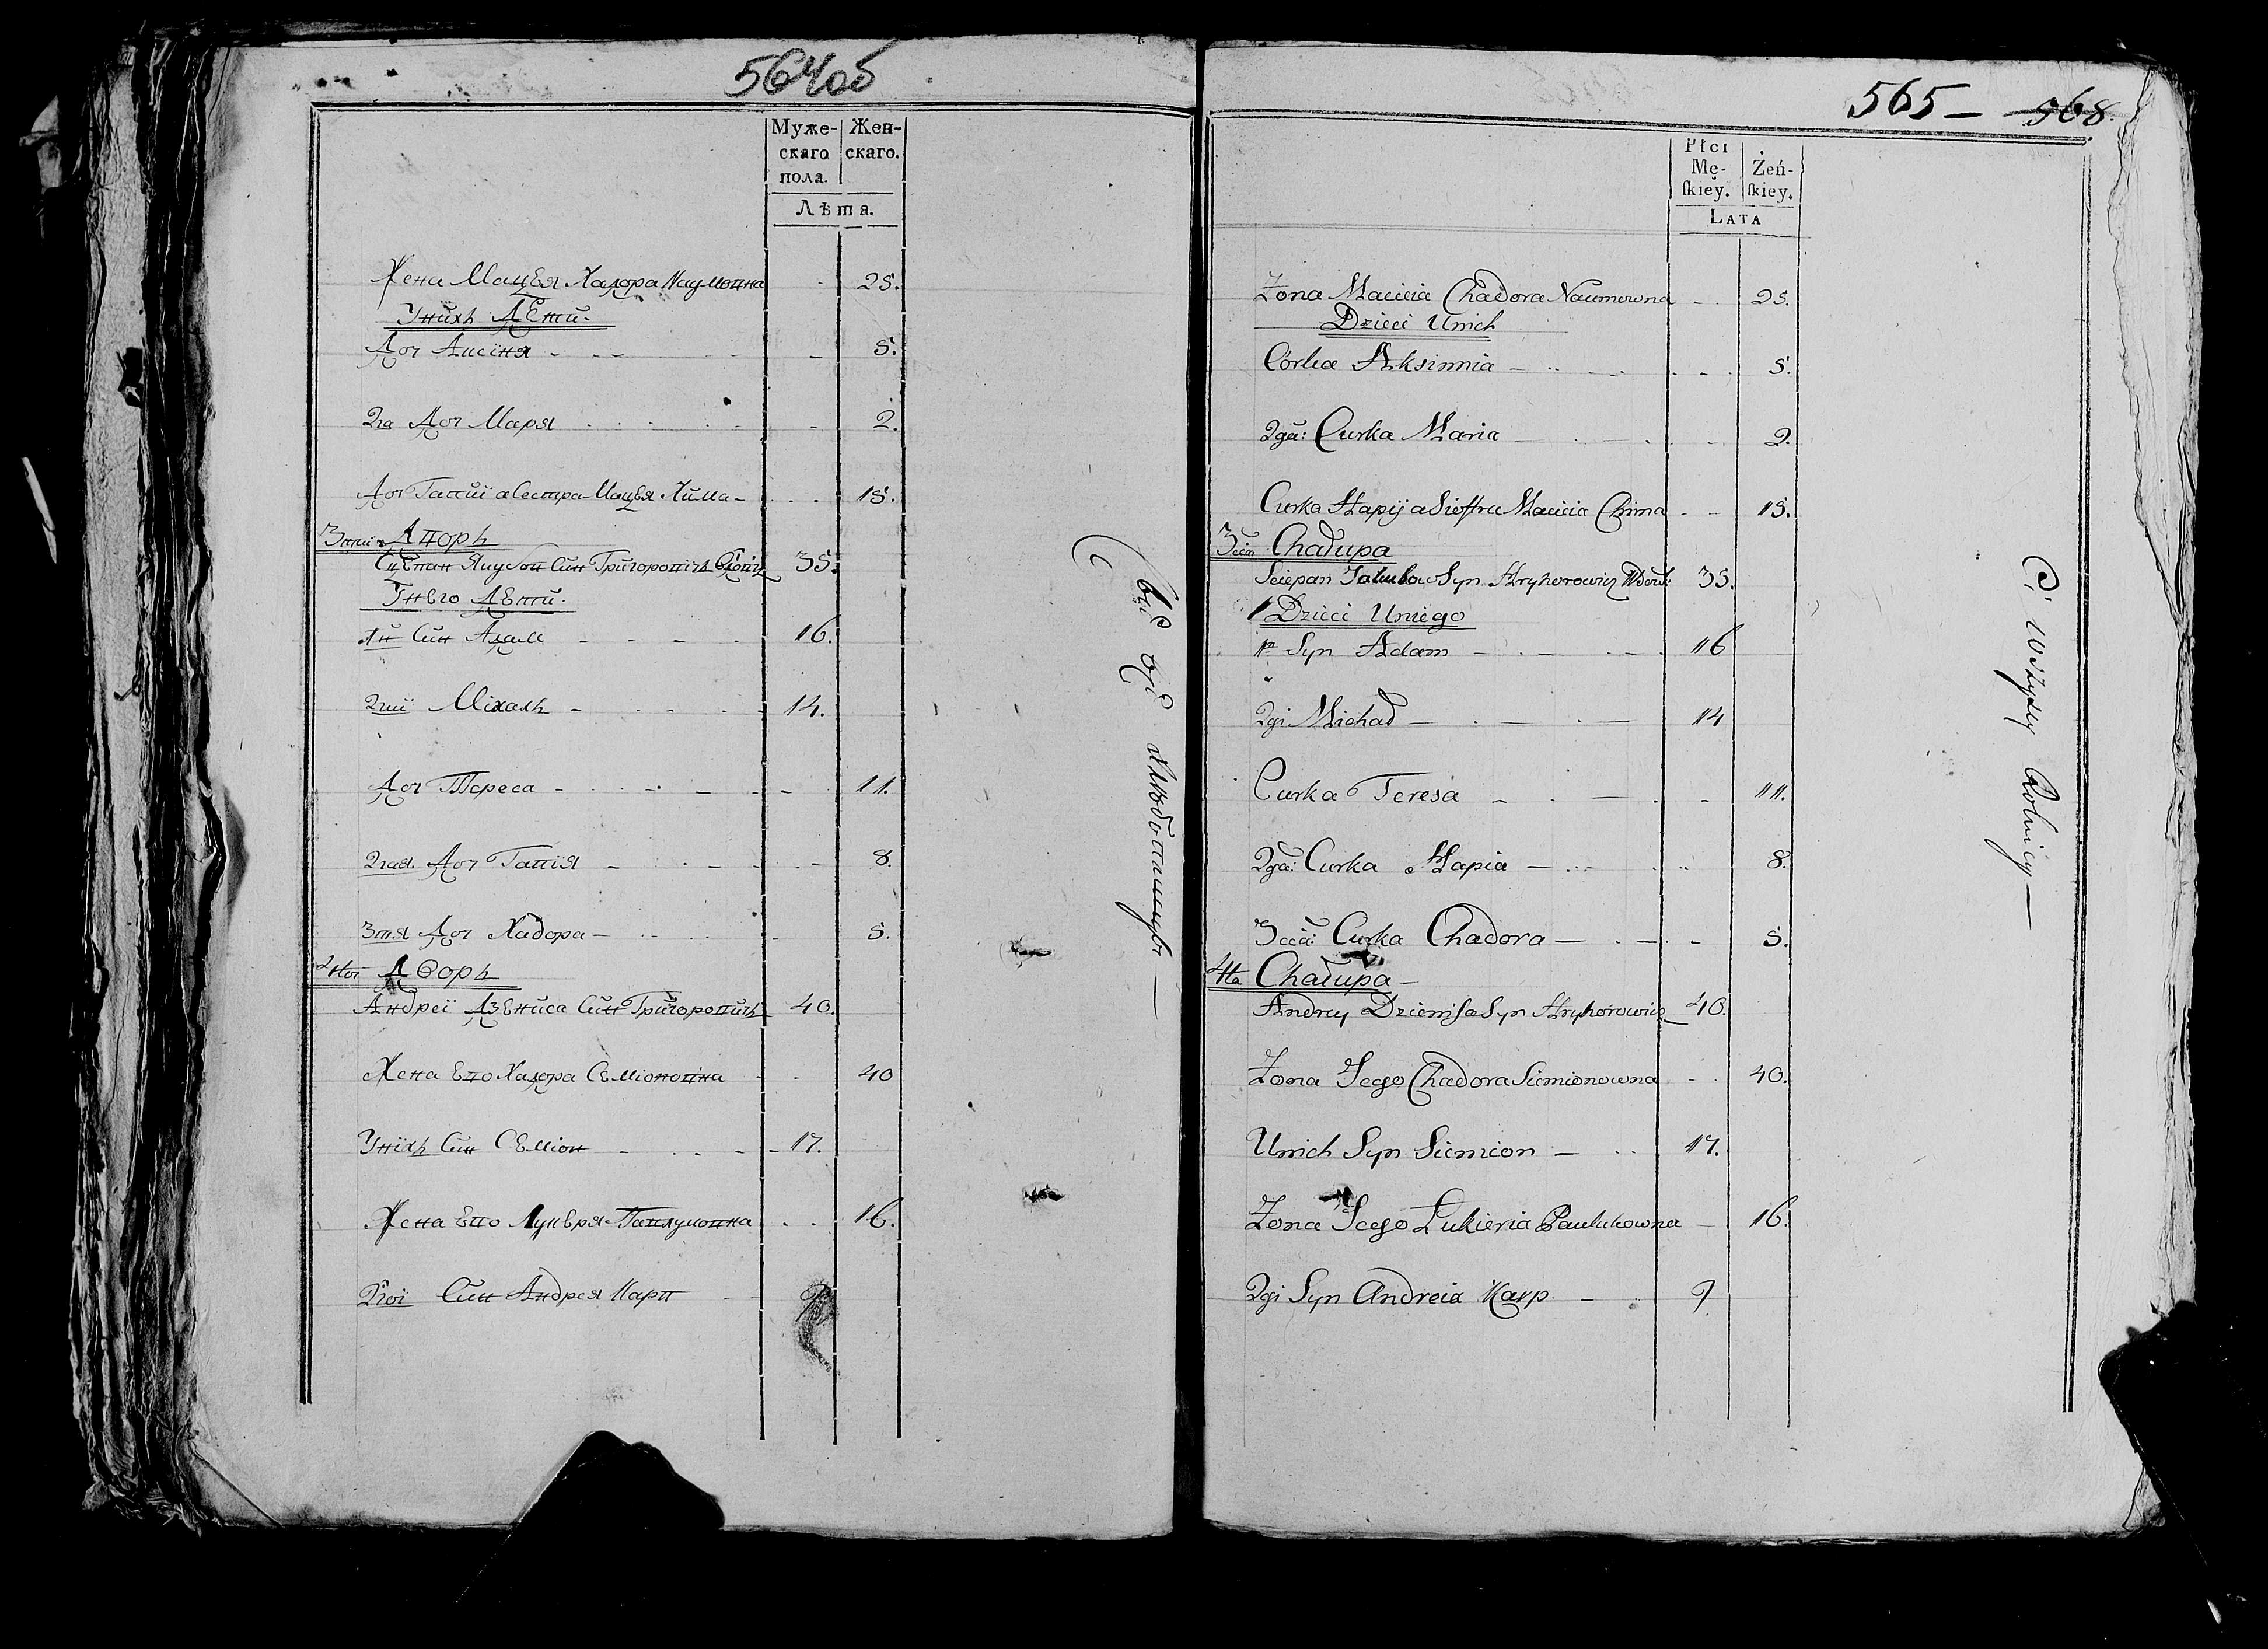 564об
Муже-
скаго
пола.
Жен-
скаго.
Лѣта.
Жена Мацѣя Хадора Наумовна 25.
Унихъ Дѣти
Доч Аксіня 5.
2га Доч Маря 2.
Доч Гапіи а Сестра Мацѣя Хима 15.
3тий Дворъ
Сцѣпан Якубов Син Григоровичъ 35.
Унѣго Дѣти
1й Син Адам 16.
2гий Міхалъ 14.
Доч Тереса 11.
2гая Доч Гапія 8.
3тя Доч Хадора 5.
4той Дворъ
Андреї Дзѣниса Син Григоровичъ 40.
Жена Ево Хадора Сѣміоновна 40
Унїхъ Син Сѣміон 17.
Жена Ево Лукѣря Павлуковна 16.
2гої Син Андрея Карп
565 — 568
Płci
Mę-
ſkiey.
Żeń-
ſkiey.
LATA
Żona Macieia Chadora Naumowna 25.
Dzieci Unich
Córka Aksinnia 5.
2ga: Curka Maria 2.
Curka Hapij a Siestra Macieia Chima 15.
3cia Chałupa
Sciepan Jakubow Syn Hryhorowicz 35.
Dzieci Uniego
1r Syn Adam 16
2gi Michał 14
Curka Teresa 11.
2ga: Curka Hapia 8.
3cia Curka Chadora 5.
4ta Chałupa
Andrey Dzienisa Syn Hryhorowicz 40.
Żona Jego Chadora Siemionowna 40.
Unich Syn Siemion 17.
Żona Jego Łukieria Pawlukowna 16.
2gi Syn Andreia Karp 9
Ci Wszyscy Rolnicy